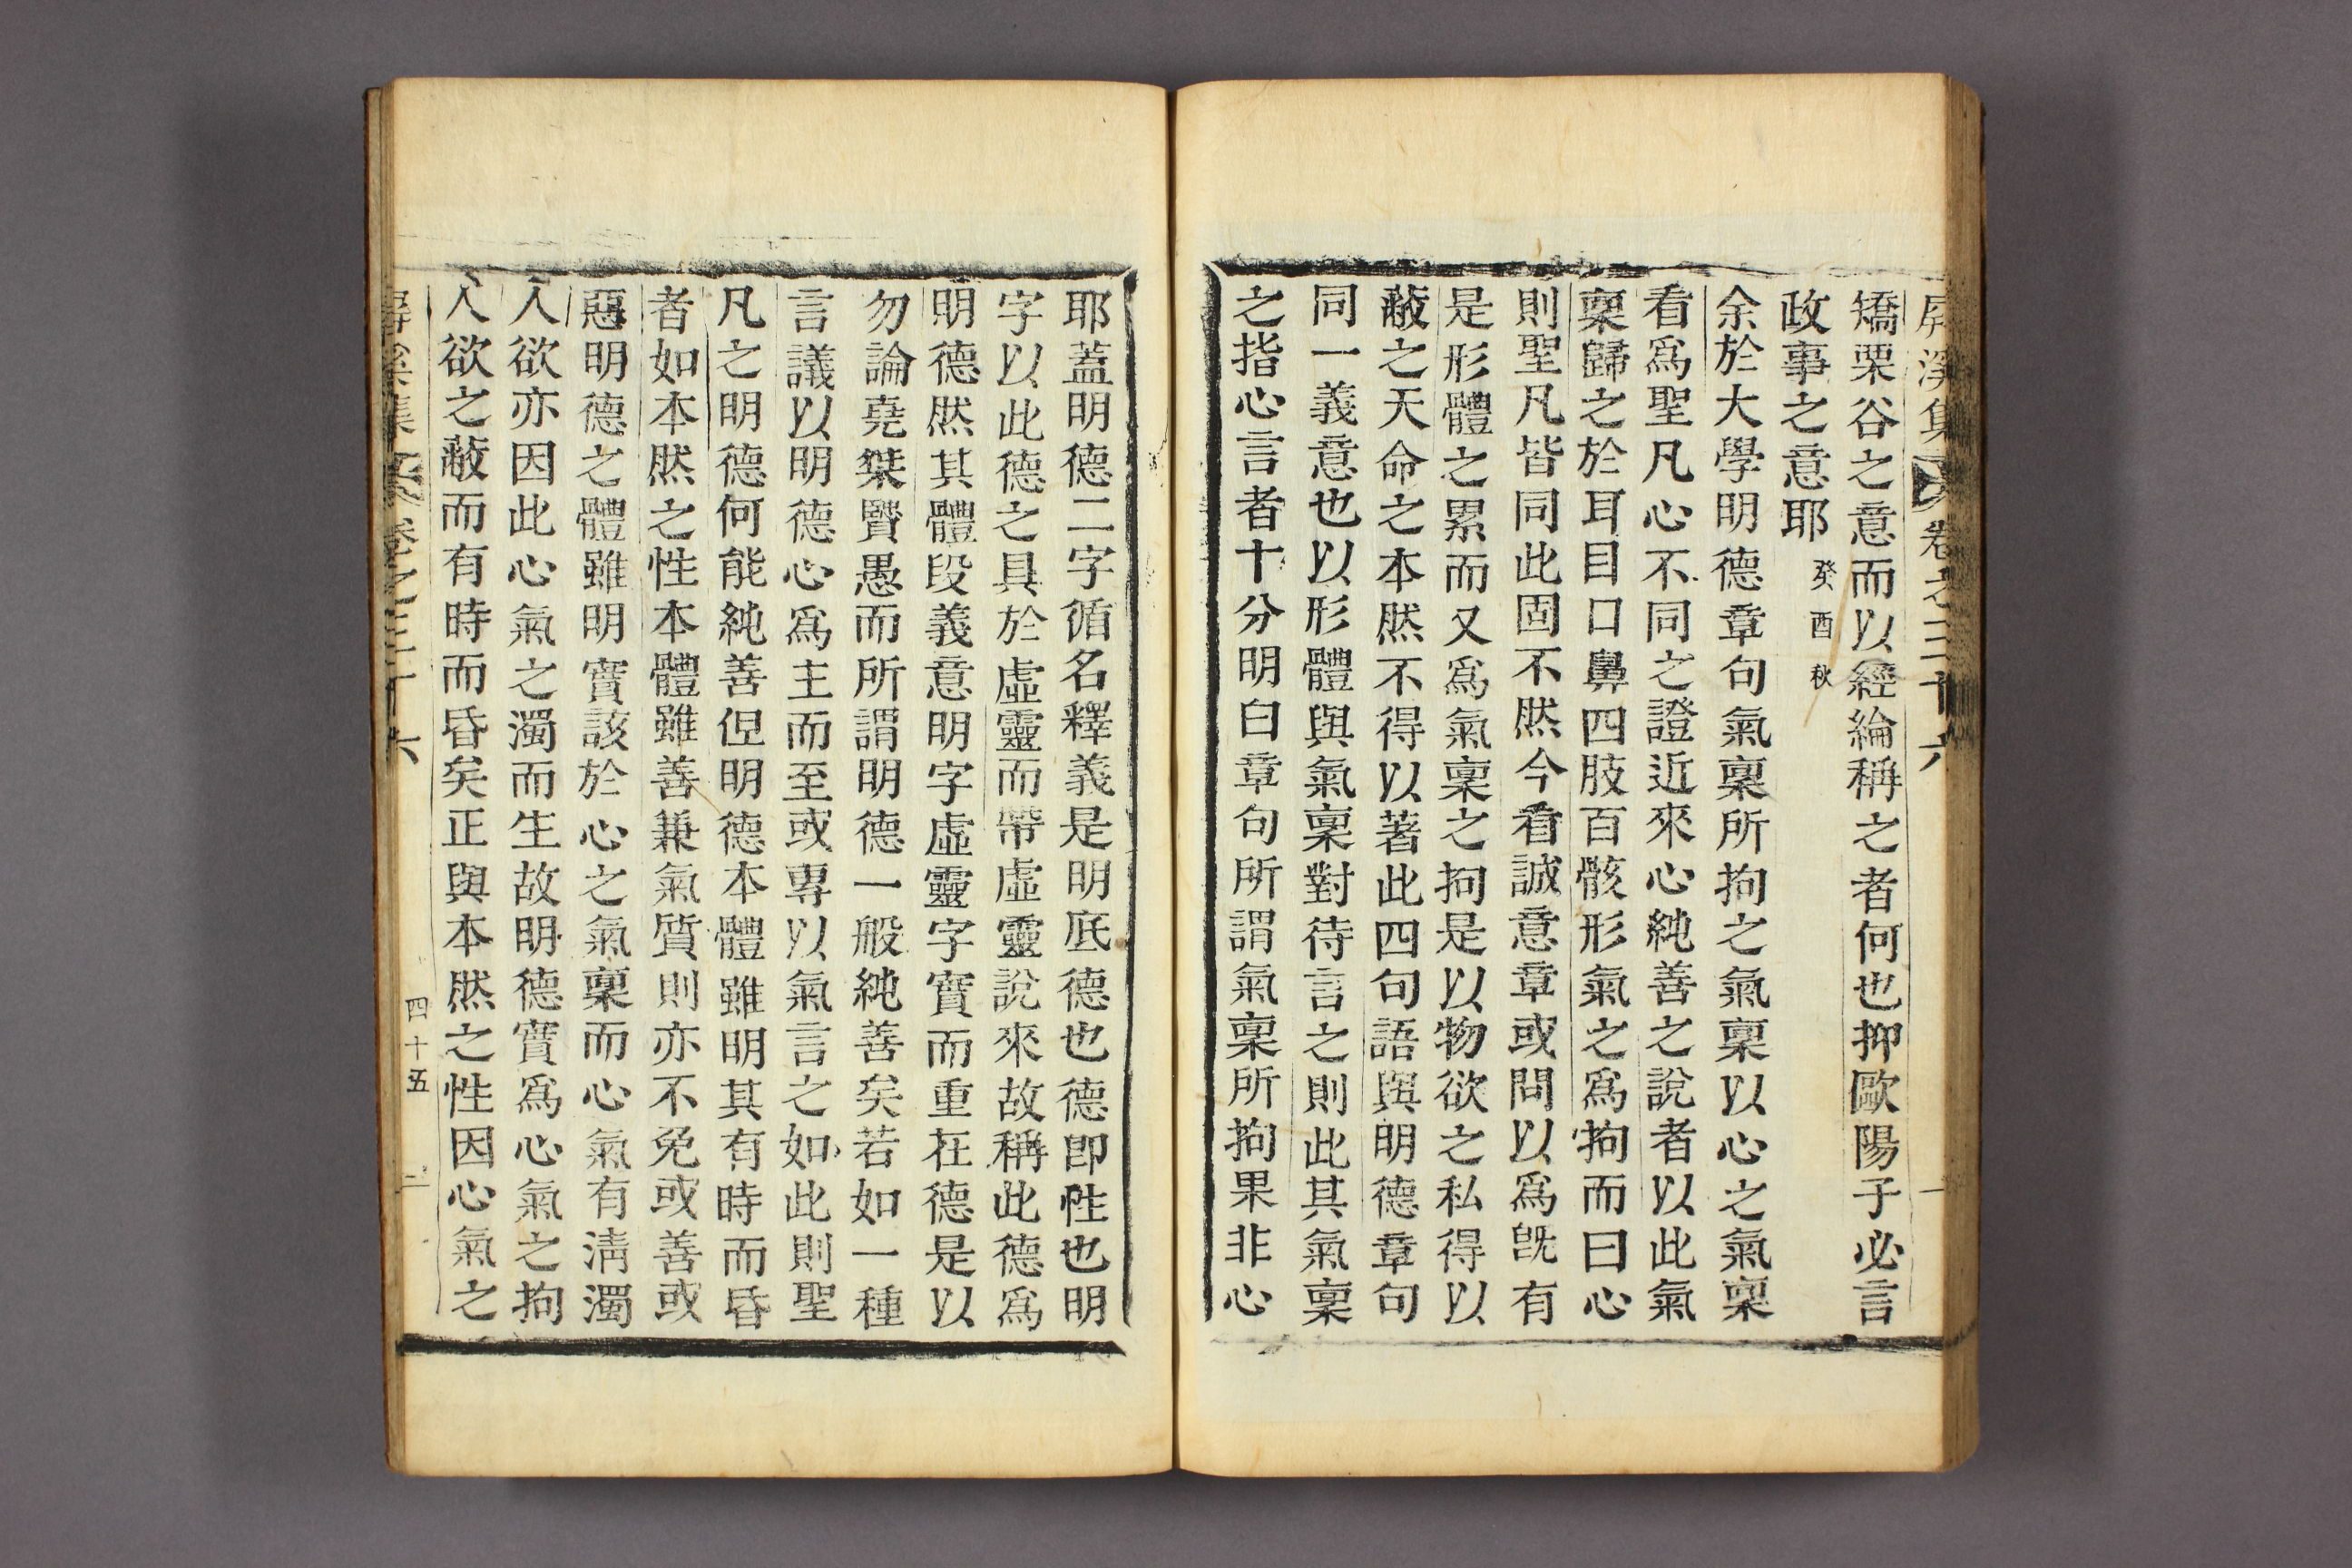 屛溪集 卷之三十六
矯栗谷之意而以經綸稱之者何也抑歐陽子必言
政事之意耶 癸酉秋
余於大學明德章句氣稟所拘之氣稟以心之氣稟
看爲聖凡心不同之證近來心純善之說者以此氣
稟歸之於耳目口鼻四肢百骸形氣之爲拘而曰心
則聖凡皆同此固不然今看誠意章或問以爲旣有
是形體之累而又爲氣稟之拘是以物欲之私得以
蔽之天命之本然不得以著此四句語與明德章句
同一義意也以形體與氣稟對待言之則此其氣稟
之指心言者十分明白章句所謂氣稟所拘果非心
耶蓋明德二字循名釋義是明底德也德卽性也明
字以此德之具於虛靈而帶虛靈說來故稱此德爲
明德然其體段義意明字虛靈字實而重在德是以
勿論堯桀賢愚而所謂明德一般純善矣若如一種
言議以明德心爲主而至或專以氣言之如此則聖
凡之明德何能純善但明德本體雖明其有時而昏
者如本然之性本體雖善兼氣質則亦不免或善或
惡明德之體雖明實該於心之氣稟而心氣有淸濁
人欲亦因此心氣之濁而生故明德實爲心氣之拘
人欲之蔽而有時而昏矣正與本然之性因心氣之
屛溪集 卷之三十六 四十五 二